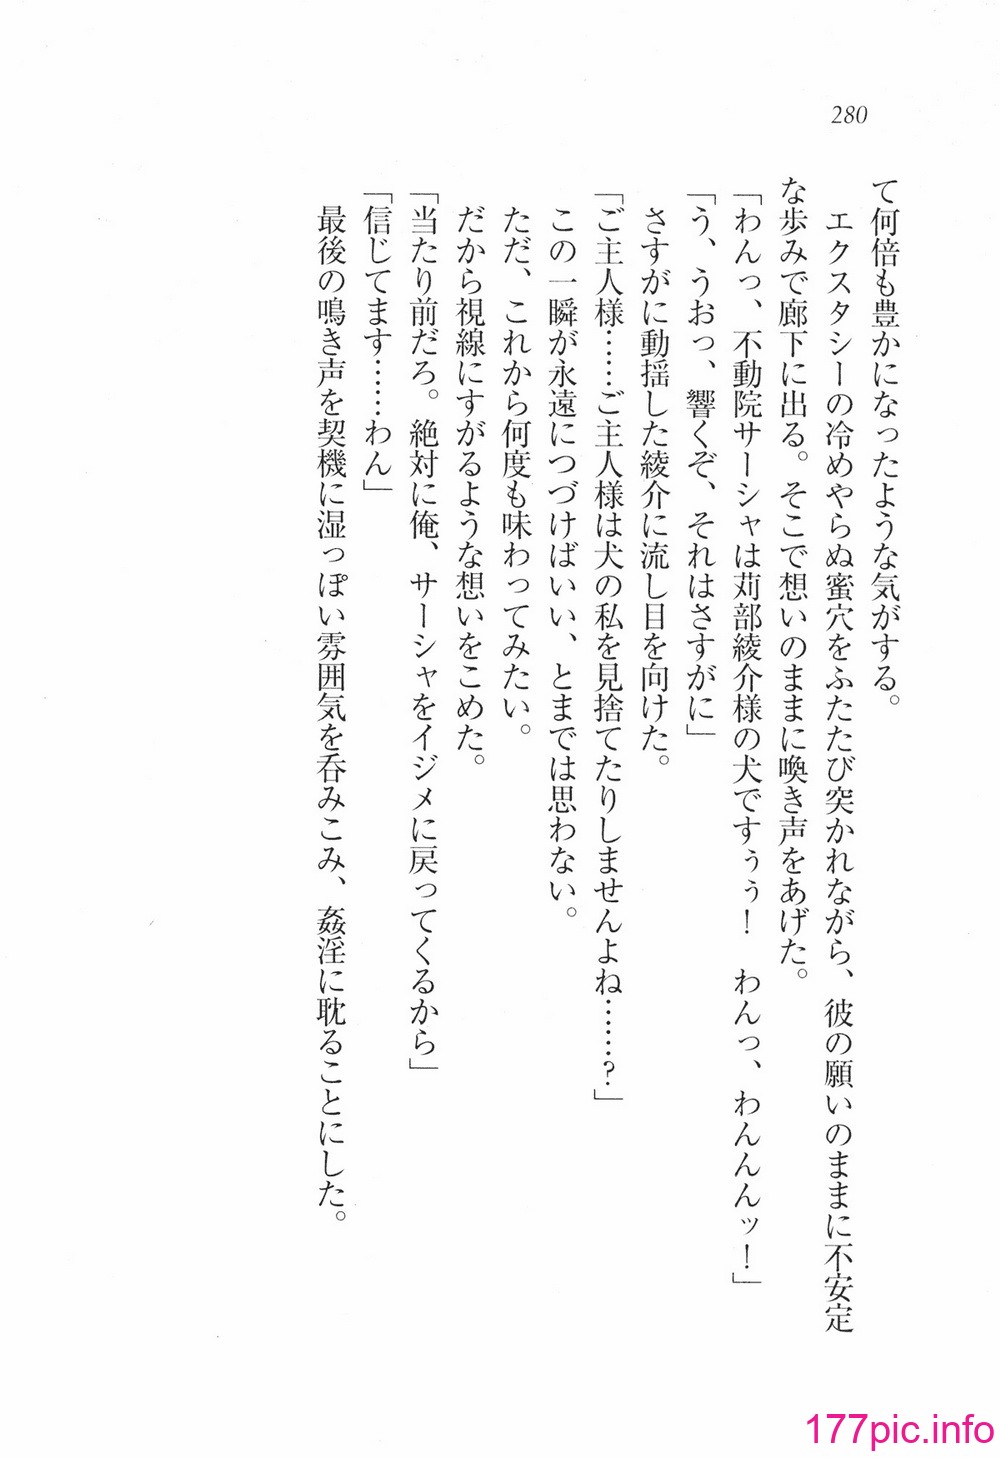 280
て何倍も豊かになったような気がする。
エクスタシーの冷めやらぬ蜜穴をふたたび突かれながら、彼の願いのままに不安定
な歩みで廊下に出る。そこで想いのままに喚き声をあげた。
「わんっ、不動院サーシャは苅部綾介様の犬ですぅぅ！　わんっ、わんんんッ！」
「う、うおっ、響くぞ、それはさすがに」
さすがに動揺した綾介に流し目を向けた。
「ご主人様……ご主人様は犬の私を見捨てたりしませんよね……？」
この一瞬が永遠につづけばいい、とまでは思わない。
ただ、これから何度も味わってみたい。
だから視線にすがるような想いをこめた。
「当たり前だろ。絶対に俺、サーシャをイジメに戻ってくるから」
「信じてます……わん」
最後の鳴き声を契機に湿っぽい雰囲気を呑みこみ、姦淫に耽ることにした。
177pic.info